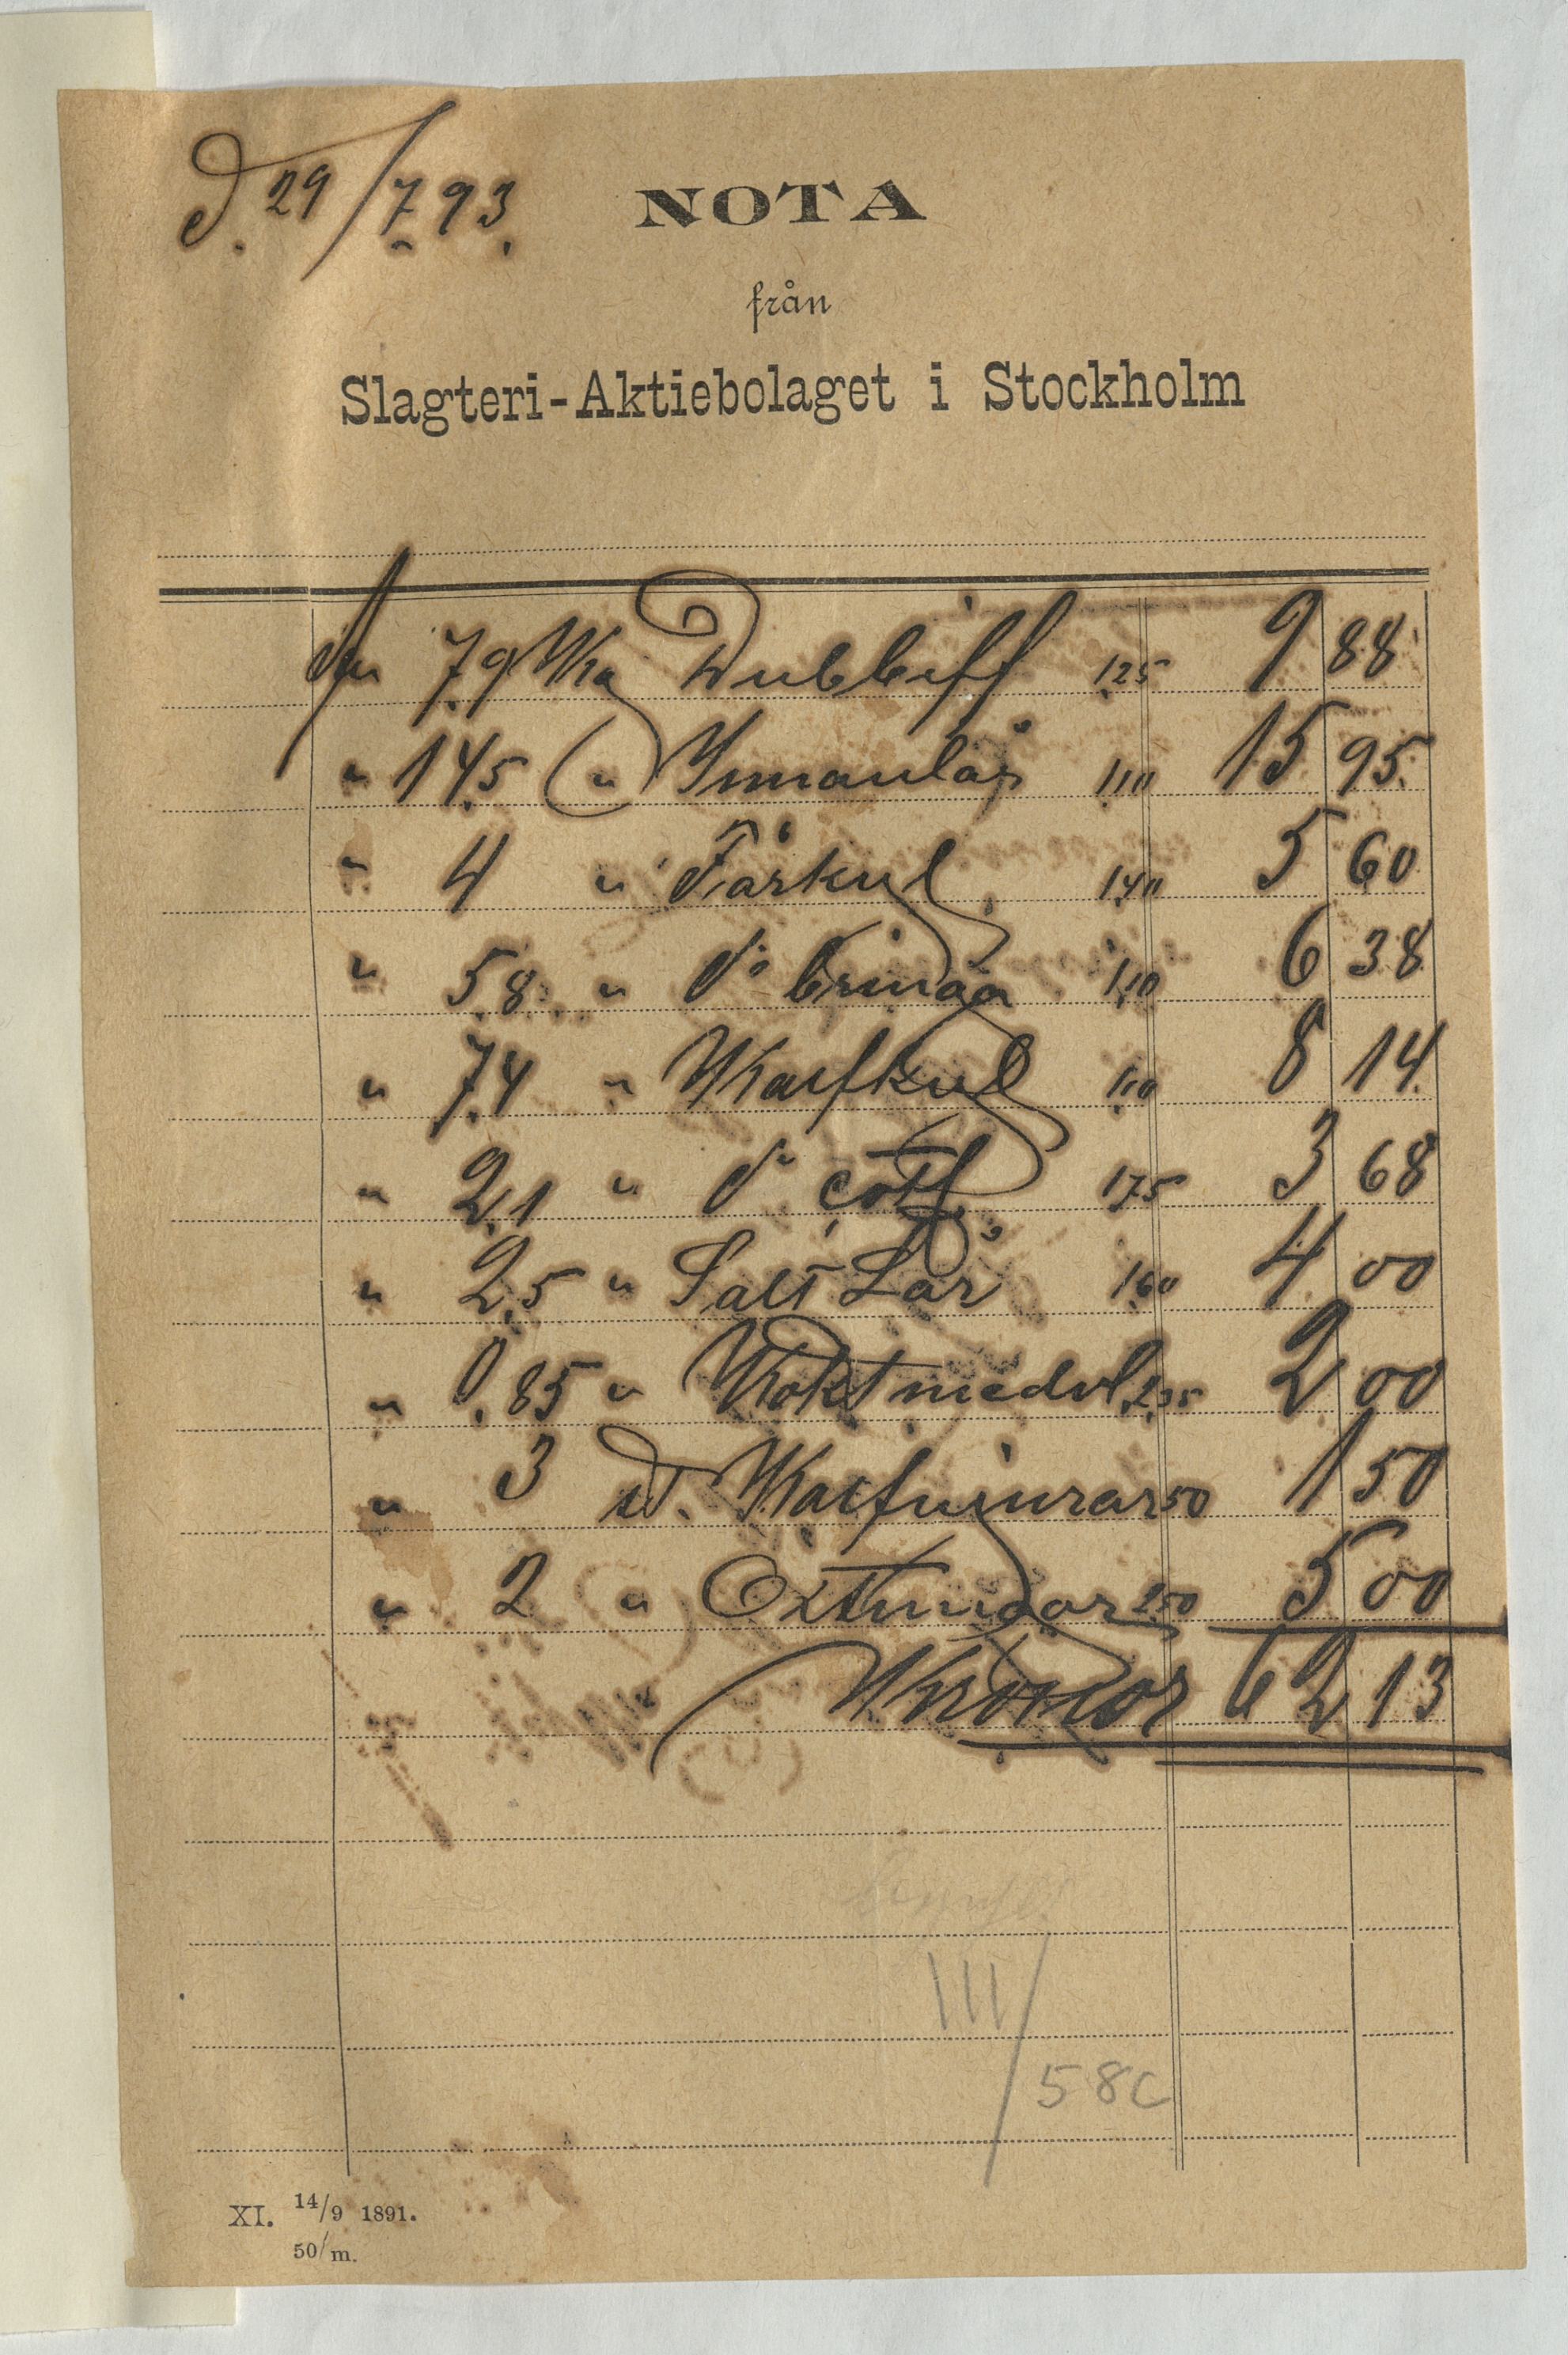 d. 29/7 93.
NOTA
från
Slagteri-Aktiebolaget i Stockholm
7,9 Kg Dubbeiff 1,25 9 88
" 14,5 " Innanlår 1,10 15 95
" 4 " Fårkyl 1,40 5 60
" 5,8 " do bringa 1,10 6 38
" 7,4 " Kalfkyl 1,10 8 14
" 2,1 " do cotl. 1,75 3 68
" 2,5 " Salt Lår 1,60 4 00
" 0,85 " Kokt medv. 2,35 2 00
" 3 st. Kalfnjurar 50 1 50
" 2 " Oxtungor 2,50 5 00
Kronor 62 13
III/58c
XI. 14/9 1891.
50/m.